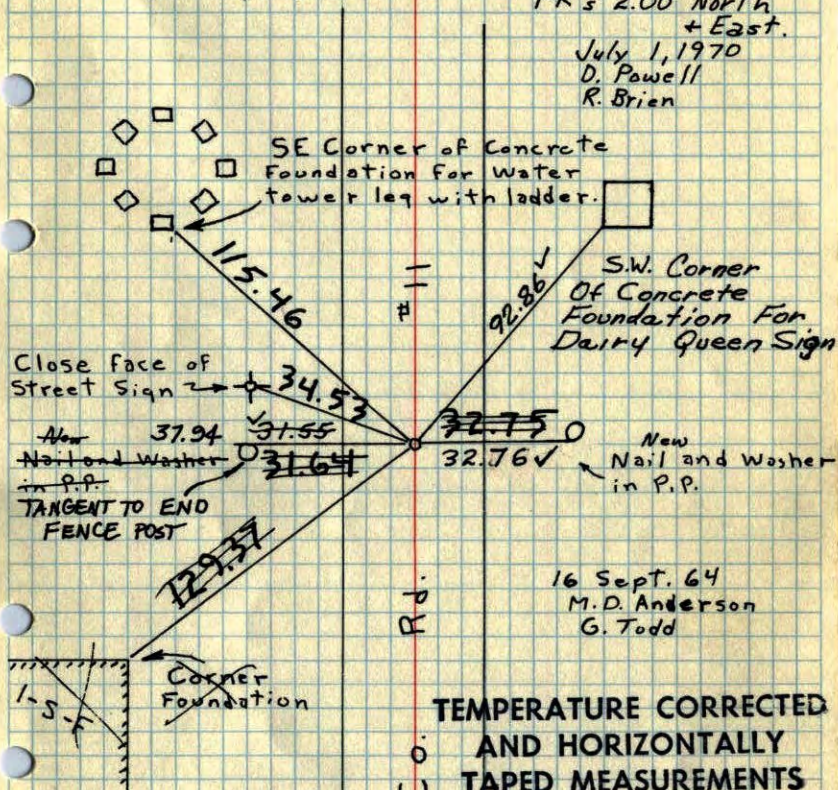 2.00 North
+ East.
July 1, 1970
D. Powell
R. Brien
SE Corner of Concrete
Foundation for Water
tower leg with ladder.
115.46
92.86 ✓
S.W. Corner
Of Concrete
Foundation For
Dairy Queen Sign
# 11
Close face of
Street Sign
34.53
New
Nail and Washer
in P.P.
37.94
✓31.55
31.64
TANGENT TO END
FENCE POST
32.75
32.76 ✓
New
Nail and Washer
in P.P.
129.37
16 Sept. 64
M.D. Anderson
G. Todd
Rd.
Corner
Foundation
1-S-F
TEMPERATURE CORRECTED
AND HORIZONTALLY
TAPED MEASUREMENTS